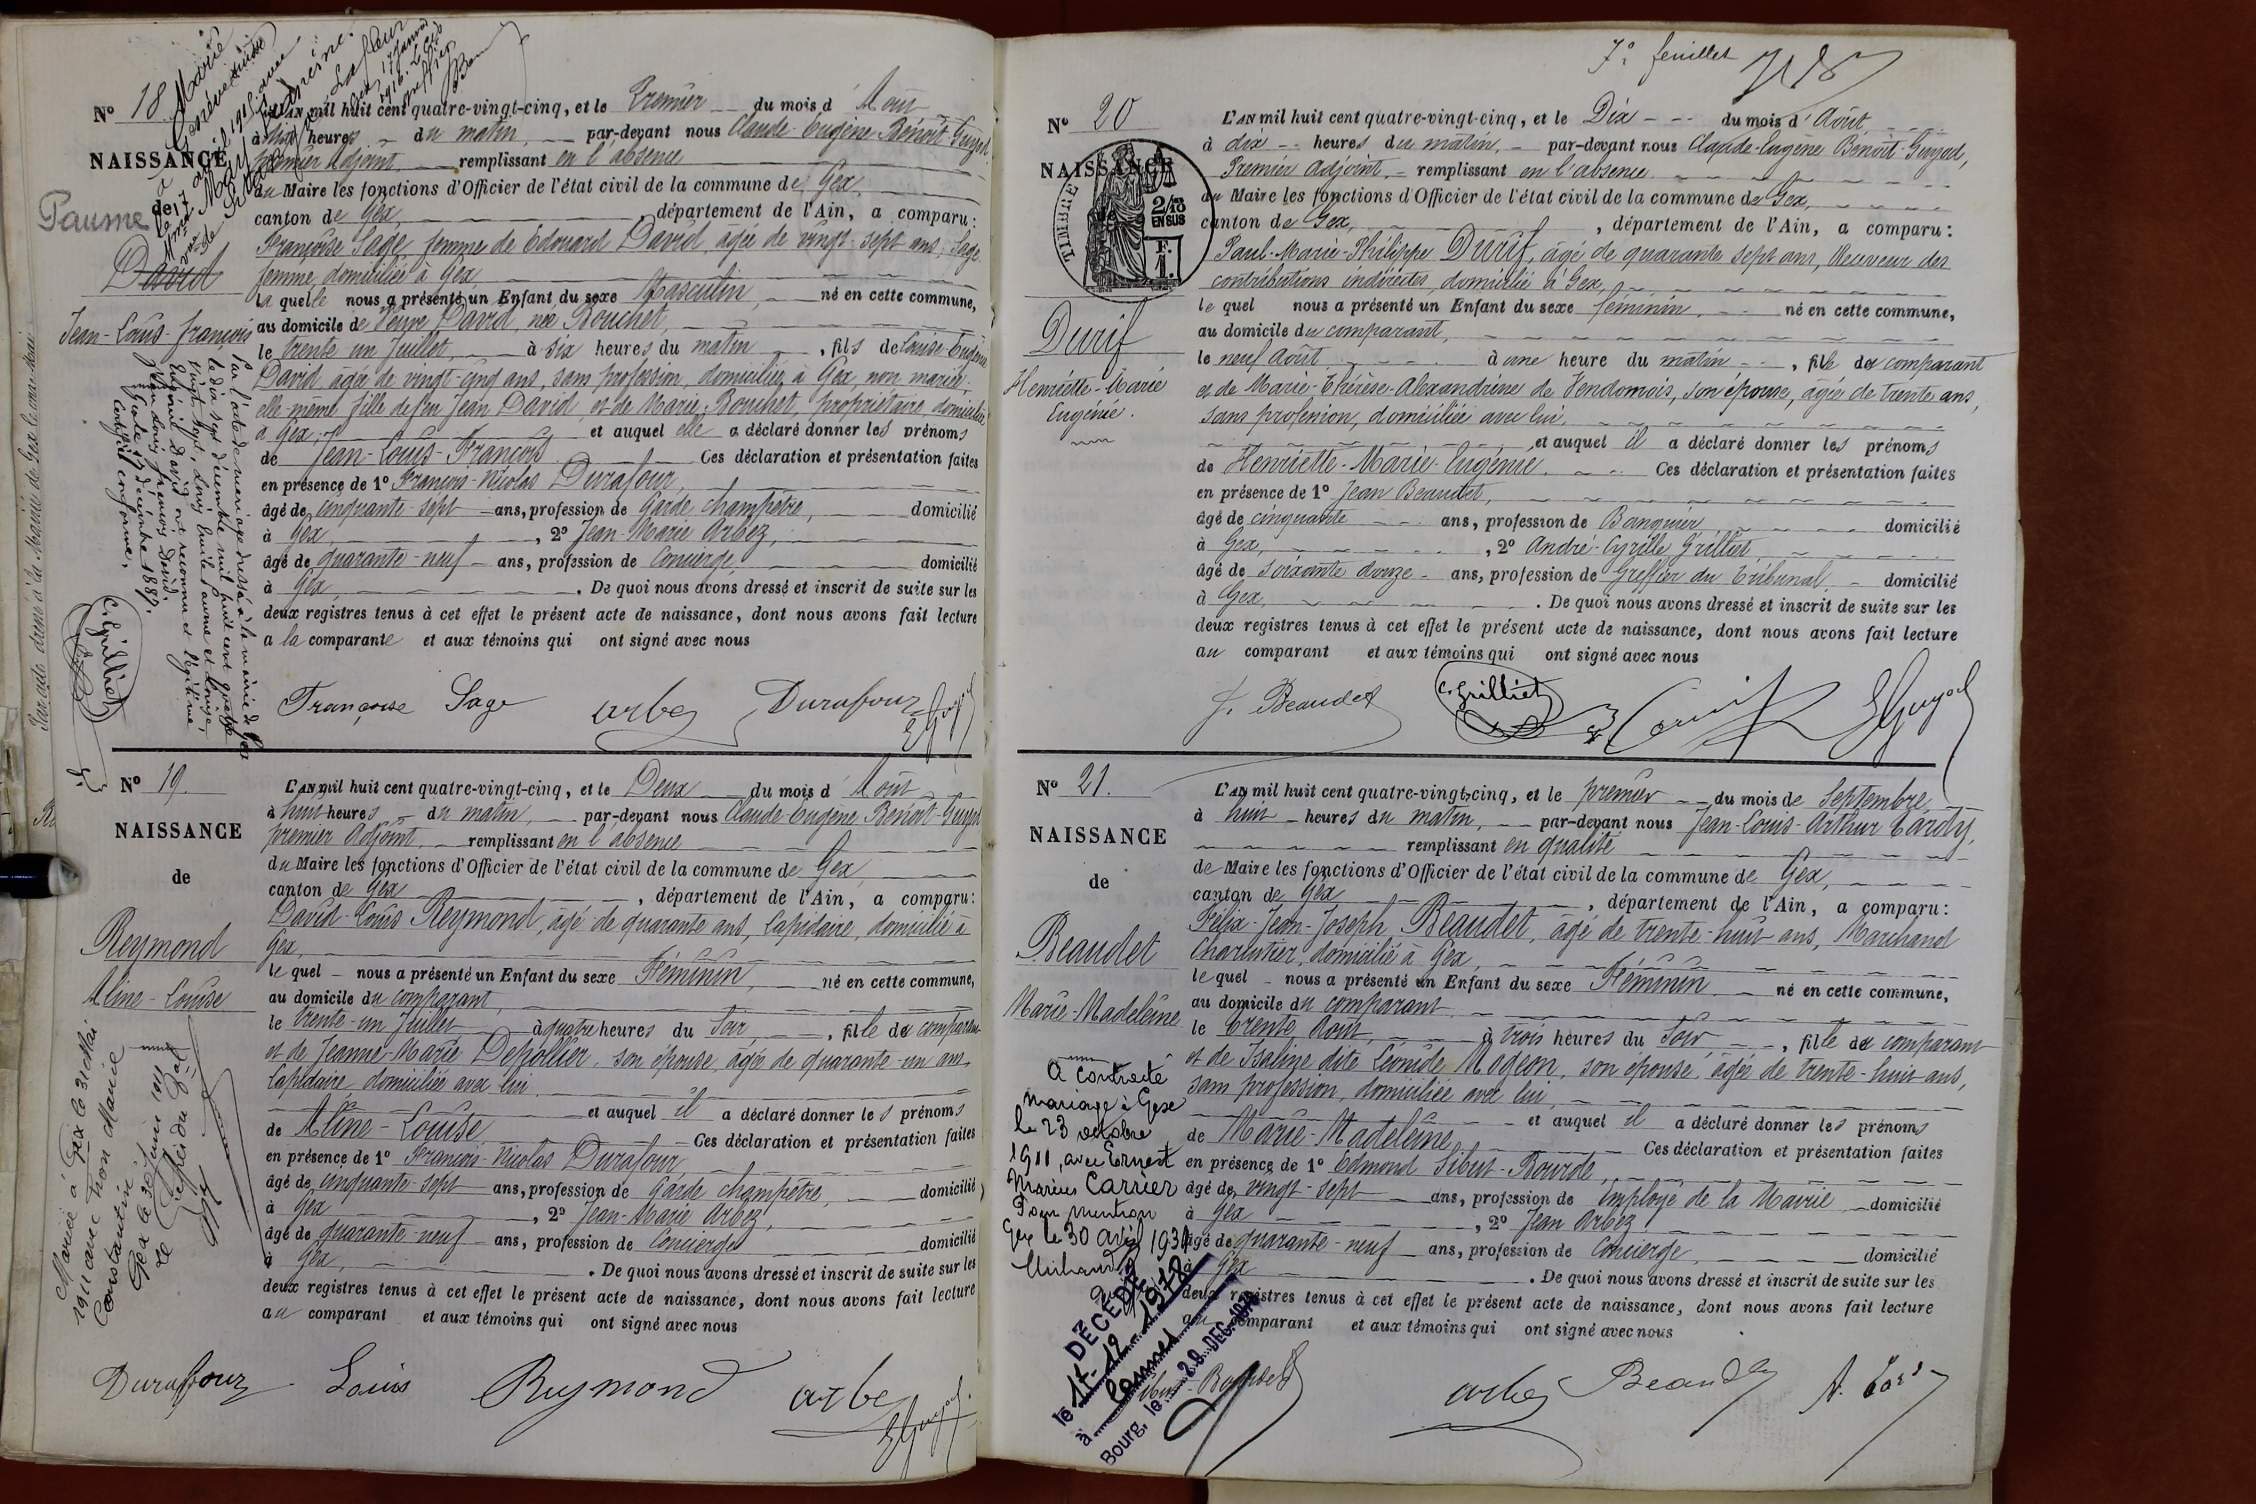 Nº 18.
NAISSANCE
de
Paume
David
Jean-Louis-François
L'AN mil huit cent quatre-vingt-cinq, et le Premier du mois d'Août
à dix heures du matin, par-devant nous Claude-Eugène-Benoît Guyod
premier Adjoint remplissant en l'absence
du Maire les fonctions d'Officier de l'état civil de la commune de Gex,
canton de Gex, département de l'Ain, a comparu:
Françoise Sage, femme de Edouard David, âgée de vingt-sept ans, Sage
femme, domiciliée à Gex,
la quelle nous a présenté un Enfant du sexe Masculin, né en cette commune,
au domicile de Veuve David, née Bouchet,
le trente un Juillet, à six heures du matin, fils de Louise-Eugénie
David, âgée de vingt-cinq ans, sans profession, domiciliée à Gex, non mariée,
elle même fille de feu Jean David, et de Marie Bouchet, propriétaire, domiciliée
à Gex; et auquel elle a déclaré donner les prénoms
de Jean-Louis-François Ces déclaration et présentation faites
en présence de 1º François-Nicolas Durafour,
âgé de cinquante-sept ans, profession de Garde champêtre, domicilié
à Gex, 2º Jean-Marie Arbez,
âgé de quarante-neuf ans, profession de Concierge, domicilié
à Gex, . De quoi nous avons dressé et inscrit de suite sur les
deux registres tenus à cet effet le présent acte de naissance, dont nous avons fait lecture
a la comparante et aux témoins qui ont signé avec nous
Par l'acte de mariage dressé à la mairie de Gex
le dix sept décembre mil huit cent quatre
vingt sept, Louis Emile Paume et Louise
Eugénie David ont reconnu et légitimé
Jean Louis François David.
Gex le 17 décembre 1887.
Certifié conforme,
C. Grilliet
Françoise Sage arbez Durafour E Guyod
Nº 19.
NAISSANCE
de
Reymond
Aline-Louise
L'AN mil huit cent quatre-vingt-cinq, et le Deux du mois d'Août
à huit heures du matin, par-devant nous Claude-Eugène Benoît Guyod
premier Adjoint, remplissant en l'absence
du Maire les fonctions d'Officier de l'état civil de la commune de Gex,
canton de Gex, département de l'Ain, a comparu:
David-Louis Reymond, âgé de quarante ans, Lapidaire, domicilié à
Gex,
le quel nous a présenté un Enfant du sexe Féminin, né en cette commune,
au domicile du comparant,
le trente-un Juillet à quatre heures du Soir, fille du comparant
et de Jeanne-Marie Depollier, son épouse, âgée de quarante-un ans,
Lapidaire, domiciliée avec lui
et auquel il a déclaré donner les prénoms
de Aline-Louise Ces déclaration et présentation faites
en présence de 1º François-Nicolas Durafour
âgé de cinquante-sept ans, profession de Garde champêtre, domicilié
à Gex, 2º Jean-Marie Arbez,
âgé de quarante-neuf ans, profession de Concierge domicilié
à Gex, . De quoi nous avons dressé et inscrit de suite sur les
deux registres tenus à cet effet le présent acte de naissance, dont nous avons fait lecture
au comparant et aux témoins qui ont signé avec nous
Mariée à Gex le 31 Mai
1911 avec Marie
Constantin
Gex le 30 Juin 1911
Le Greffier du Gal
Durafour Louis Reymond arbez E Guyod
7e feuillet
Nº 20
NAISSANCE
de
TIMBRE
2/10 EN SUS
F. 1.
Durif
Henriette-Marie
Eugénie.
L'AN mil huit cent quatre-vingt-cinq, et le Dix du mois d'Août
à dix heures du matin, par-devant nous Claude-Eugène Benoît Guyod,
Premier Adjoint, remplissant en l'absence
du Maire les fonctions d'Officier de l'état civil de la commune de Gex,
canton de Gex, département de l'Ain, a comparu:
Paul-Marie-Philippe Durif, âgé de quarante sept ans, Receveur des
contributions indirectes, domicilié à Gex,
le quel nous a présenté un Enfant du sexe féminin, né en cette commune,
au domicile du comparant,
le neuf Août à une heure du matin, fille du comparant
et de Marie-Thérèse-Alexandrine de Vendomois, son épouse, âgée de trente ans,
sans profession, domiciliée avec lui,
et auquel il a déclaré donner les prénoms
de Henriette-Marie-Eugénie. Ces déclaration et présentation faites
en présence de 1º Jean Beaudet,
âgé de cinquante ans, profession de Banquier domicilié
à Gex, 2º André-Cyrille Grilliet
âgé de soixante douze ans, profession de Greffier du Tribunal domicilié
à Gex . De quoi nous avons dressé et inscrit de suite sur les
deux registres tenus à cet effet le présent acte de naissance, dont nous avons fait lecture
au comparant et aux témoins qui ont signé avec nous
J. Beaudet C. Grilliet E Guyod
Nº 21.
NAISSANCE
de
Beaudet
Marie-Madeleine
L'AN mil huit cent quatre-vingt-cinq, et le premier du mois de Septembre
à huit heures du matin, par-devant nous Jean-Louis-Arthur Tardy,
remplissant en qualité
de Maire les fonctions d'Officier de l'état civil de la commune de Gex,
canton de Gex, département de l'Ain, a comparu:
Félix-Jean-Joseph Beaudet, âgé de trente-huit ans, Marchand
Charcutier, domicilié à Gex,
le quel nous a présenté un Enfant du sexe Féminin né en cette commune,
au domicile du comparant
le trente Août, à trois heures du Soir, fille du comparant
et de Isaline dite Léonide Modeon, son épouse, âgée de trente-huit ans,
sans profession, domiciliée avec lui,
et auquel il a déclaré donner les prénoms
de Marie-Madeleine Ces déclaration et présentation faites
en présence de 1º Edmond Sibut-Bourde,
âgé de vingt-sept ans, profession de Employé de la Mairie domicilié
à Gex, 2º Jean Arbez
âgé de quarante-neuf ans, profession de Concierge, domicilié
à Gex . De quoi nous avons dressé et inscrit de suite sur les
deux registres tenus à cet effet le présent acte de naissance, dont nous avons fait lecture
au comparant et aux témoins qui ont signé avec nous
A contracté
mariage à Gex
le 23 octobre
1911, avec Ernest
Marius Carrier
Pour mention
Gex le 30 avril 1934
DÉCÉDÉ
le 17-12-1978
à
Bourg, le 28 DEC. 1978
arbez Beaudet A. Tardy